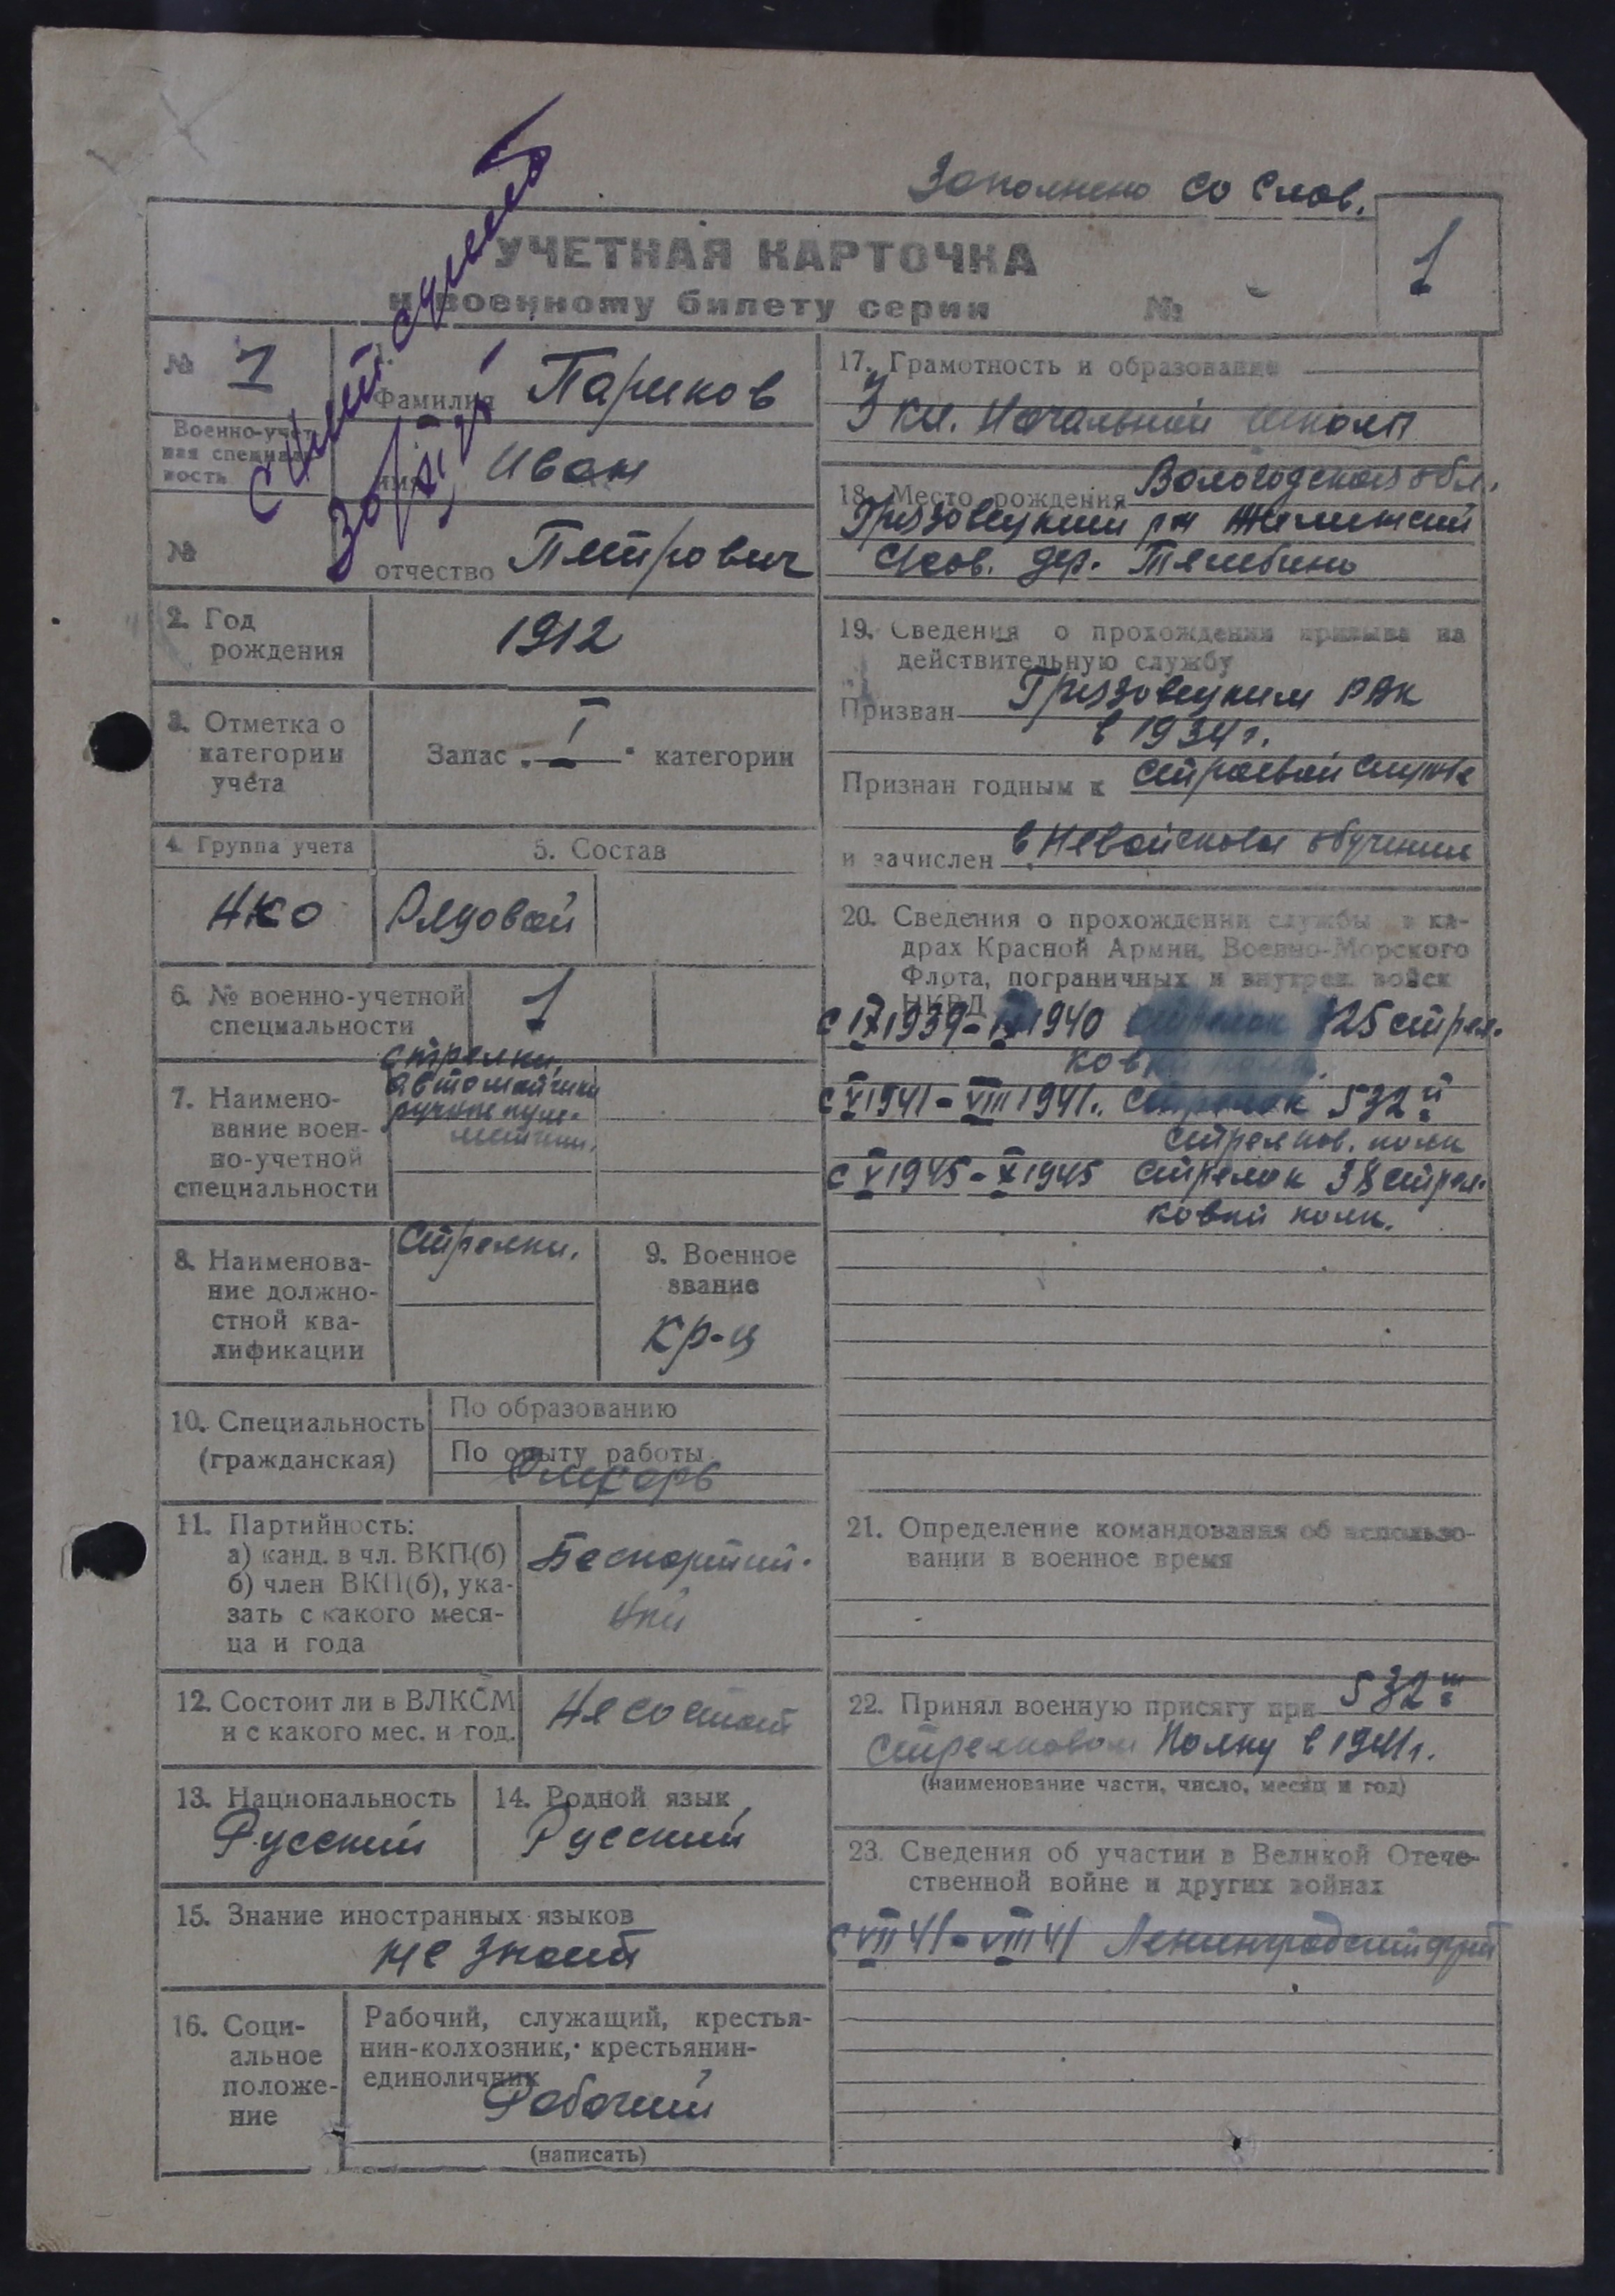 Заполнено со слов.
1
УЧЕТНАЯ КАРТОЧКА
к военному билету серии №
№ 1
Военно-учет-
ная специаль-
ность
№
Фамилия Париков
имя Иван
отчество Петрович
2. Год
рождения
1912
3. Отметка о
категории
учета
Запас I категории
4. Группа учета
НКО
5. Состав
Рядовой
6. № военно-учетной
специальности
1
7. Наимено-
вание воен-
но-учетной
специальности
стрелки,
автоматчики
ручные пуле-
метчики.
8. Наименова-
ние должно-
стной ква-
лификации
Стрелки.
9. Военное
звание
Кр-ц
10. Специальность
(гражданская)
По образованию
По опыту работы
Слесарь
11. Партийность:
а) канд. в чл. ВКП(б)
б) член ВКП(б), ука-
зать с какого меся-
ца и года
Беспартий-
ный
12. Состоит ли в ВЛКСМ
и с какого мес. и год.
Не состоит
13. Национальность
Русский
14. Родной язык
Русский
15. Знание иностранных языков
не знает
16. Соци-
альное
положе-
ние
Рабочий, служащий, крестья-
нин-колхозник, крестьянин-
единоличник
Рабочий
(написать)
17. Грамотность и образование
3 кл. Начальной школы
18. Место рождения Вологодская обл.
Грязовецкий р-н
с/сов. дер.
19. Сведения о прохождении призыва на
действительную службу
Призван Грязовецким РВК
в 1934 г.
Признан годным к строевой службе
и зачислен в Невойсковое обучение
20. Сведения о прохождении службы в ка-
драх Красной Армии, Военно-Морского
Флота, пограничных и внутрен. войск
НКВД
с IX 1939 - 1940 стрелок 325 стрел-
ковый полк.
с VI 1941 - VIII 1941. Стрелок 532й
стрелков. полк
с V 1945 - X 1945 стрелок 38 стрел-
ковый полк.
21. Определение командования об использо-
вании в военное время
22. Принял военную присягу при 532м
стрелковом полку в 1941 г.
(наименование части, число, месяц и год)
23. Сведения об участии в Великой Отече-
ственной войне и других войнах
с VII 41 - VIII 41 Ленинградский фрт